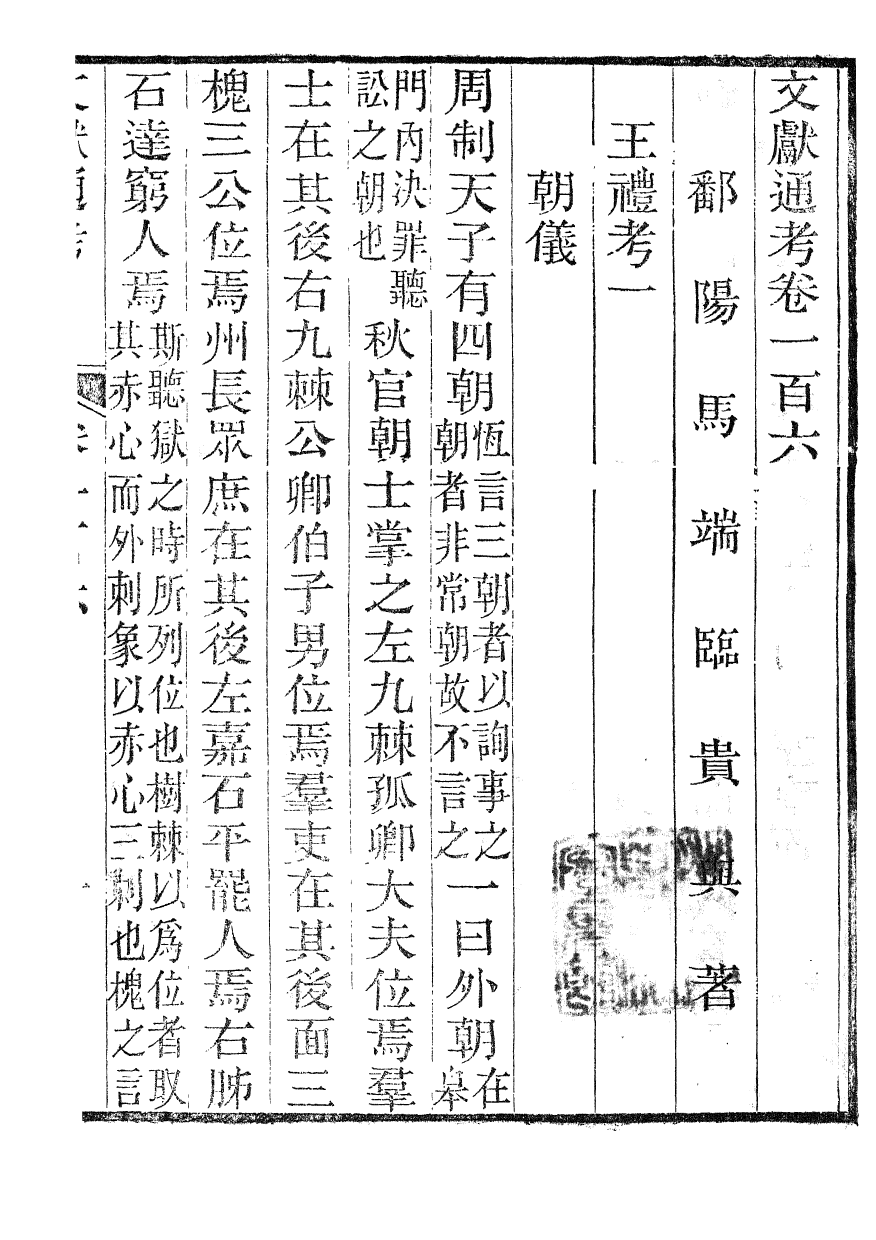 文獻通考卷一百六
鄱陽馬端臨貴與著
王禮考一
朝儀
周制天子有四朝恆言三朝者以詢事之朝者非常朝故不言之一曰外朝在皋
門內決罪聽訟之朝也秋官朝士掌之左九棘孤卿大夫位焉羣
士在其後右九棘公卿伯子男位焉羣吏在其後面三
槐三公位焉州長眾庶在其後左嘉石平罷人焉右肺
石達窮人焉斯聽獄之時所列位也樹棘以爲位者取其赤心而外刺象以赤心三刺也槐之言